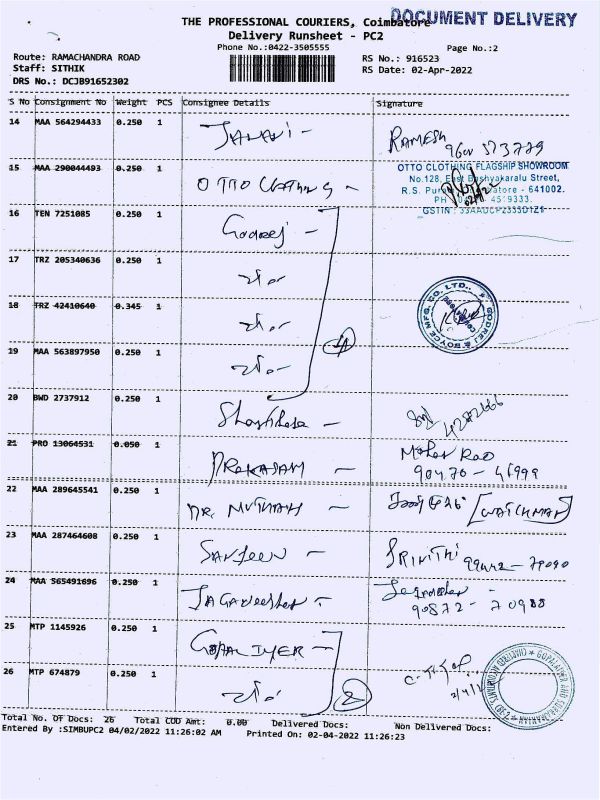 DOCUMENT DELIVERY
THE PROFESSIONAL COURIERS, Coimbatore
Delivery Runsheet - PC2
Phone No.:0422-3505555
Page No.:2
Route: RAMACHANDRA ROAD
RS No.: 916523
Staff: SITHIK
RS Date: 02-Apr-2022
DRS No.: DCJB91652302
S No Consignment No Weight PCS Consignee Details Signature
14 MAA 564294433 0.250 1 JANANI - RAMESH
15 MAA 290044493 0.250 1 OTTO CLOTHING -
OTTO CLOTHING FLAGSHIP SHOWROOM
No.128, East Bashyakaralu Street,
R.S. Coimbatore - 641002.
16 TEN 7251085 0.250 1 Godrej -
17 TRZ 205340636 0.250 1
18 TRZ 42410640 0.345 1
GODREJ & BOYCE MFG. CO. LTD.,
19 MAA 563897950 0.250 1
20 BWD 2737912 0.250 1
21 PRO 13064531 0.050 1 PRAKASAM - Mohan Rao
22 MAA 289645541 0.250 1 DR. MUTHIAH - [WATCHMAN]
23 MAA 287464608 0.250 1 SANJEEV - SRINITHI
24 MAA 565491696 0.250 1 JAGADEESHAN -
90872 - 70988
25 MTP 1145926 0.250 1 GOPAL IYER -
26 MTP 674879 0.250 1 2
GOPALAIYER AND SUBRAMANIAN * CHARTERED ACCOUNTANTS
Total No. Of Docs: 26 Total COD Amt: 0.00 Delivered Docs: Non Delivered Docs:
Entered By :SIMBUPC2 04/02/2022 11:26:02 AM Printed On: 02-04-2022 11:26:23